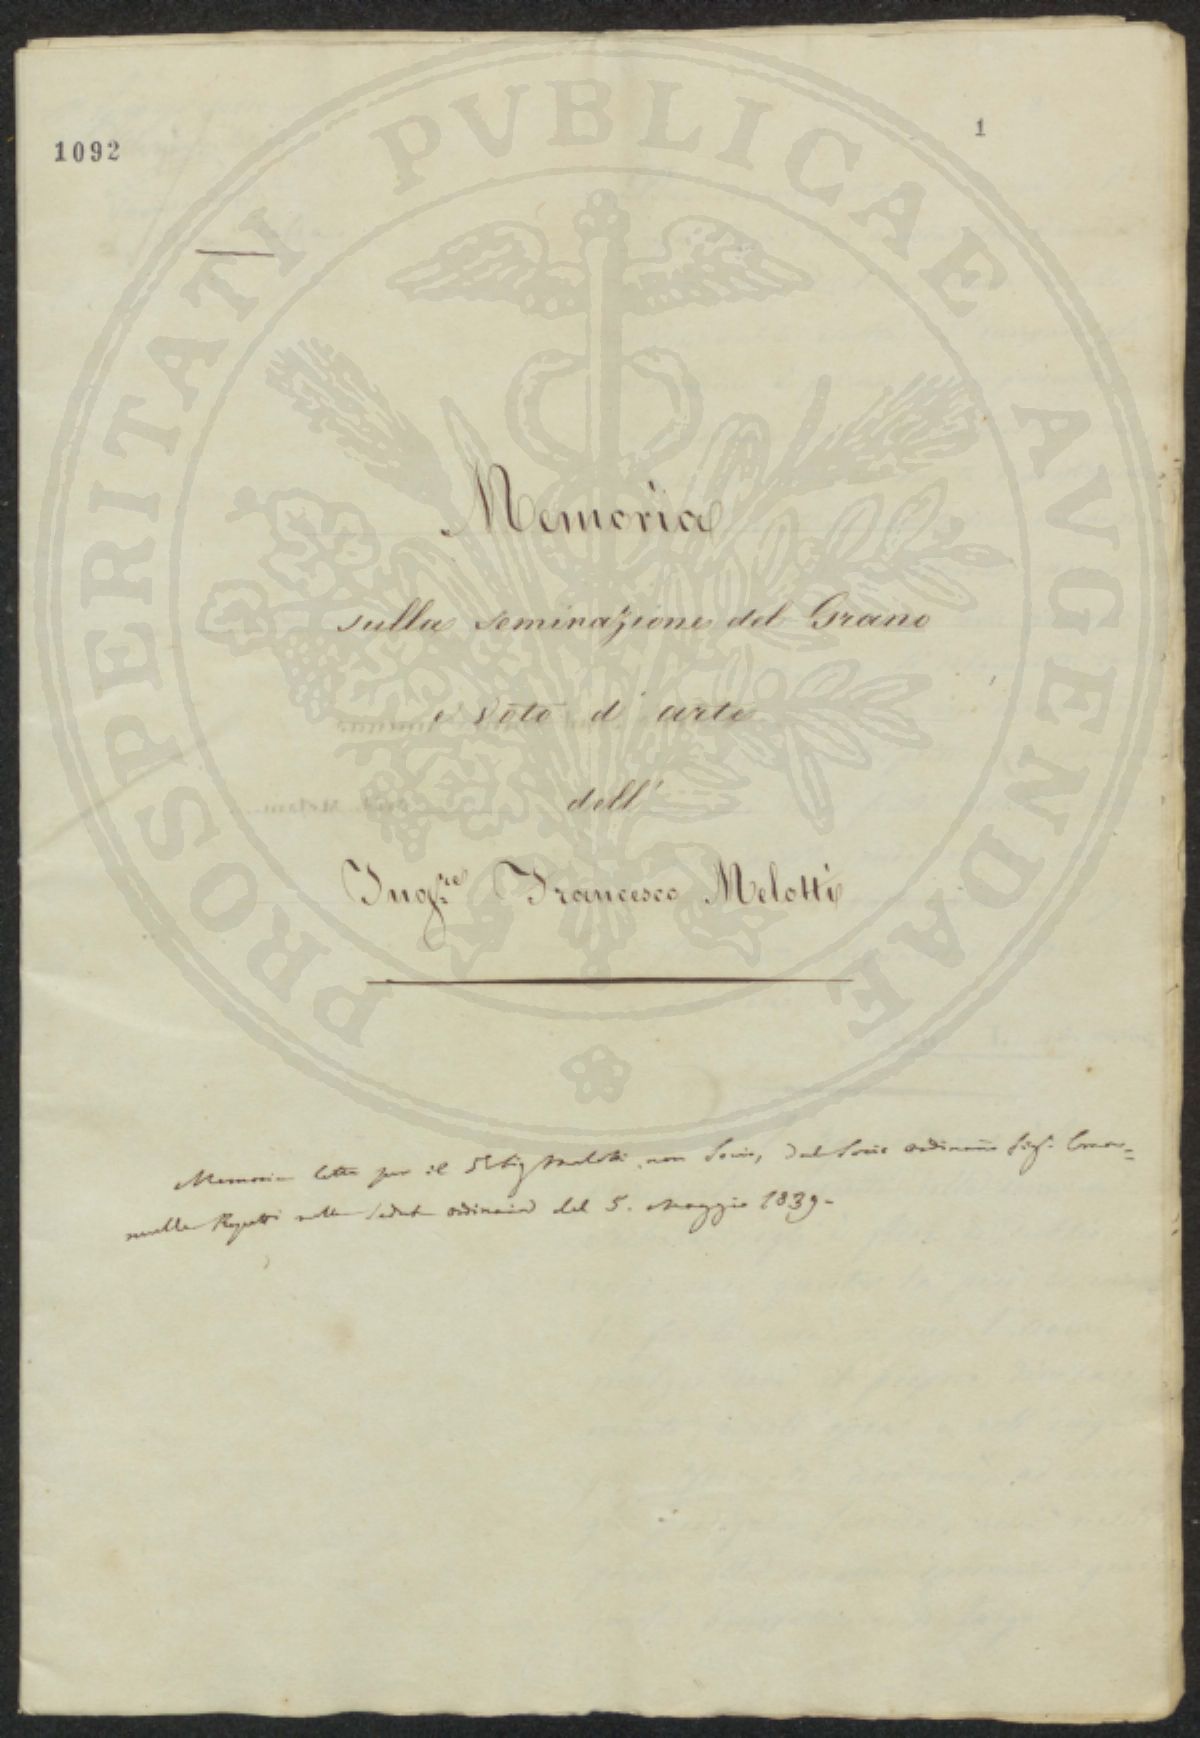 1092
1
PROSPERITATI PVBLICAE AVGENDAE
Memoria
sulla seminazione del Grano
e voto d'arte
dell'
Ingre. Francesco Melotti
Memoria letta per il Sig Melotti, non Socio, dal Socio ordinario Sigr.
nella seduta ordinaria del 5. Maggio 1839-